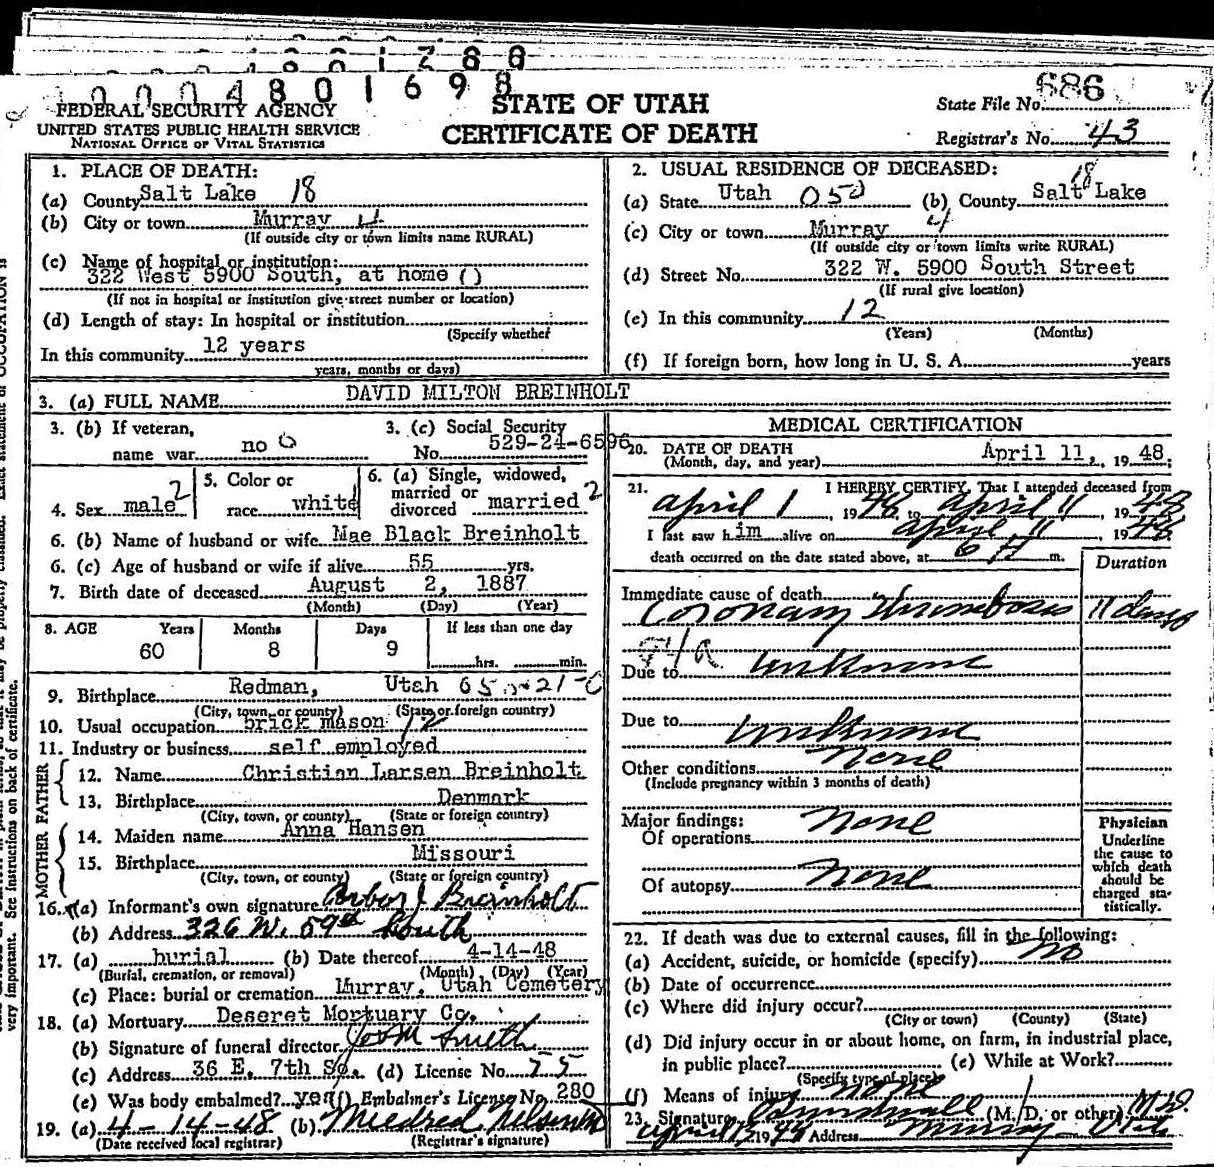 0004801698
FEDERAL SECURITY AGENCY
UNITED STATES PUBLIC HEALTH SERVICE
NATIONAL OFFICE OF VITAL STATISTICS
STATE OF UTAH
CERTIFICATE OF DEATH
State File No. 686
Registrar's No. 43
1. PLACE OF DEATH:
(a) County Salt Lake 18
(b) City or town Murray 4
(If outside city or town limits name RURAL)
(c) Name of hospital or institution:
322 West 5900 South, at home ()
(If not in hospital or institution give street number or location)
(d) Length of stay: In hospital or institution
(Specify whether
In this community 12 years
years, months or days)
2. USUAL RESIDENCE OF DECEASED:
18
(a) State Utah 050 (b) County Salt Lake
(c) City or town Murray 4
(If outside city or town limits write RURAL)
(d) Street No. 322 W. 5900 South Street
(If rural give location)
(e) In this community 12
(Years) (Months)
(f) If foreign born, how long in U. S. A. years
3. (a) FULL NAME DAVID MILTON BREINHOLT
3. (b) If veteran, name war no 0
3. (c) Social Security No. 529-24-6596
4. Sex male 2
5. Color or race white
6. (a) Single, widowed, married or divorced married 2
6. (b) Name of husband or wife Mae Black Breinholt
6. (c) Age of husband or wife if alive 55 yrs.
7. Birth date of deceased August 2, 1887
(Month) (Day) (Year)
8. AGE Years Months Days If less than one day
60 8 9 hrs. min.
9. Birthplace Redman, Utah
(City, town, or county) (State or foreign country)
10. Usual occupation brick mason
11. Industry or business self employed
FATHER
12. Name Christian Larsen Breinholt
13. Birthplace Denmark
(City, town, or county) (State or foreign country)
MOTHER
14. Maiden name Anna Hansen
15. Birthplace Missouri
(City, town, or county) (State or foreign country)
16. (a) Informant's own signature Breinholt
(b) Address 326 W. 59th South
17. (a) burial (b) Date thereof 4-14-48
(Burial, cremation, or removal) (Month) (Day) (Year)
(c) Place: burial or cremation Murray, Utah Cemetery
18. (a) Mortuary Deseret Mortuary Co.
(b) Signature of funeral director Smith
(c) Address 36 E. 7th So. (d) License No. 75
(e) Was body embalmed? yes (f) Embalmer's License No. 280
19. (a) 4-14-48 (b) Mildred Nelson
(Date received local registrar) (Registrar's signature)
MEDICAL CERTIFICATION
20. DATE OF DEATH
(Month, day, and year) April 11, 1948;
21. I HEREBY CERTIFY, That I attended deceased from
April 1, 1948, to April 11, 1948
I last saw him alive on April 11, 1948
death occurred on the date stated above, at 6 A m.
Duration
Immediate cause of death
Coronary Thrombosis 11 days
94a
Due to unknown
Due to unknown
Other conditions None
(Include pregnancy within 3 months of death)
Major findings:
Of operations None
Of autopsy None
Physician
Underline
the cause to
which death
should be
charged sta-
tistically.
22. If death was due to external causes, fill in the following:
(a) Accident, suicide, or homicide (specify) No
(b) Date of occurrence
(c) Where did injury occur?
(City or town) (County) (State)
(d) Did injury occur in or about home, on farm, in industrial place,
in public place? (e) While at Work?
(Specify type of place)
(f) Means of injury none
23. Signature (M. D. or other) M.D.
April 13 1948 Address Murray Utah
very important. See instructions on back of certificate.